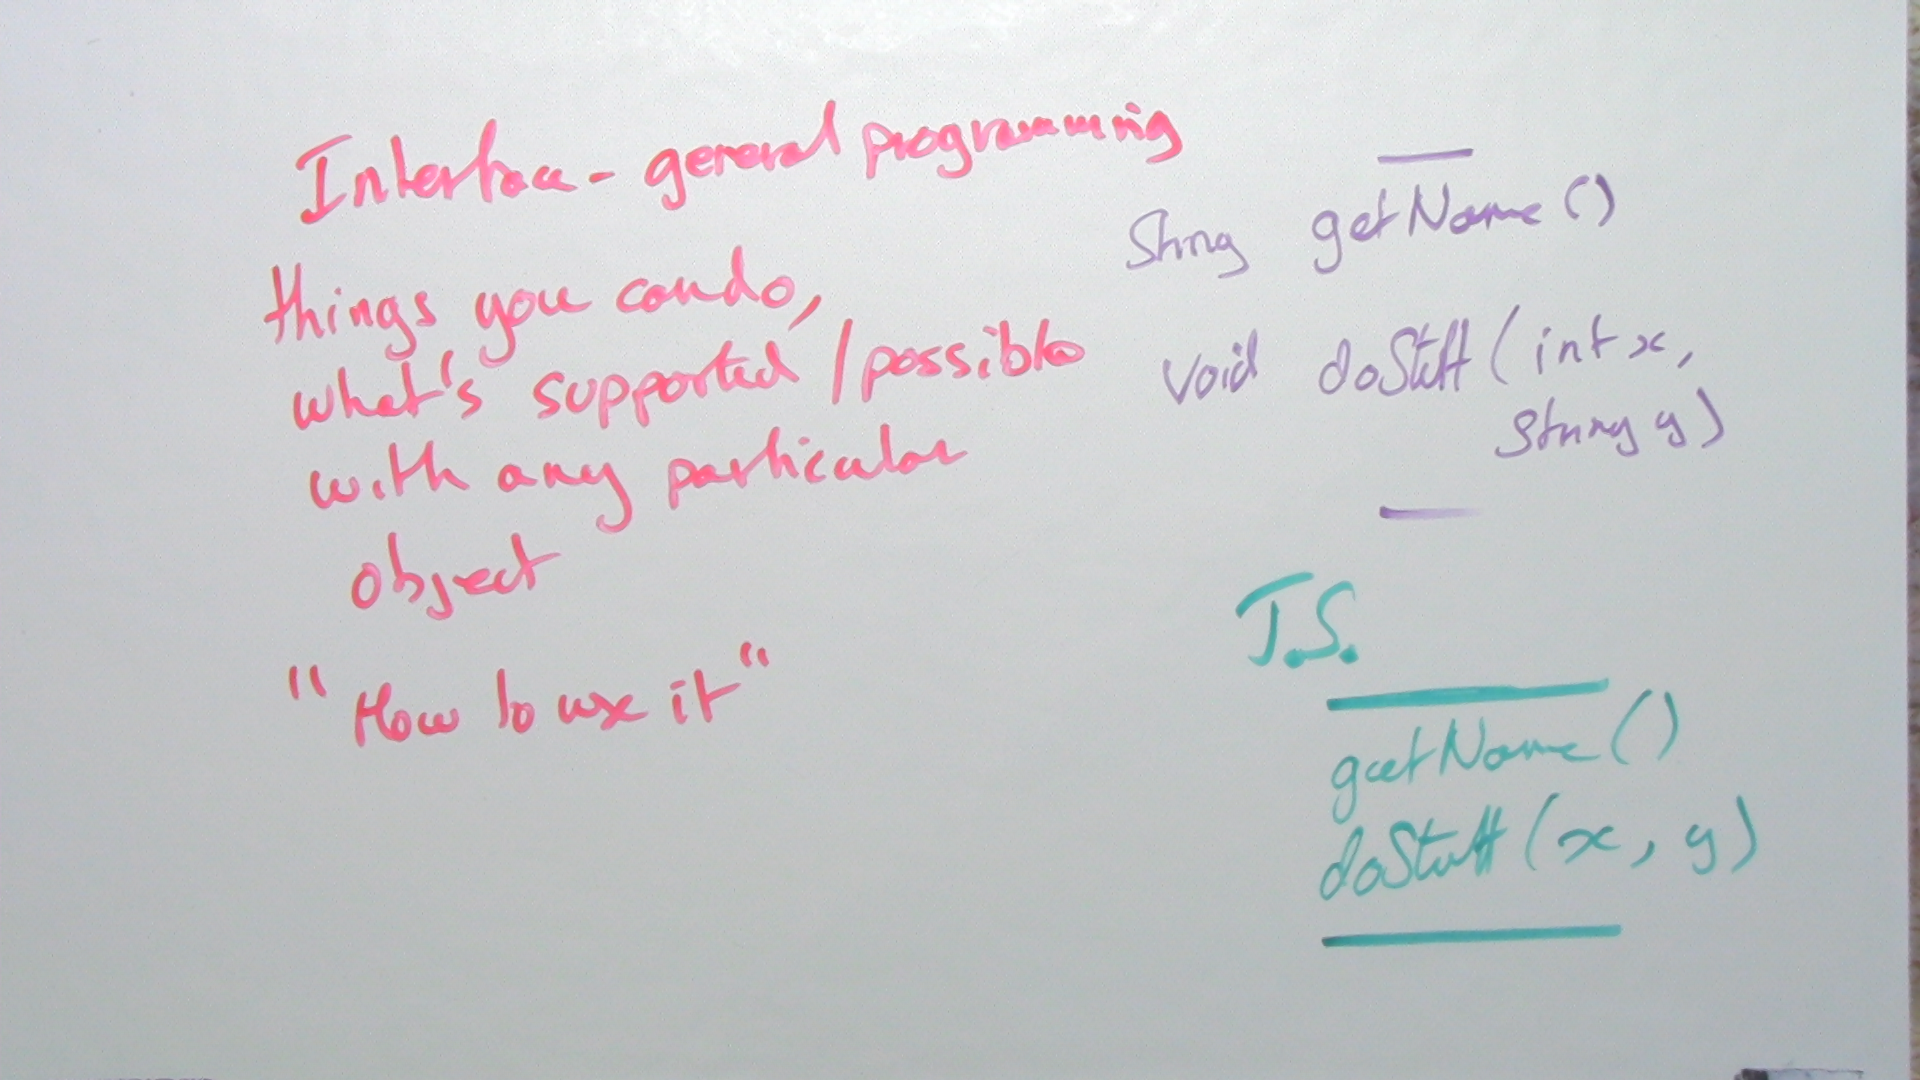 Interface - general programming
things you can do,
what's supported / possible
with any particular
object
"How to use it"
String getName ()
void doStuff (int x,
String y)
J.S.
getName ()
doStuff (x, y)